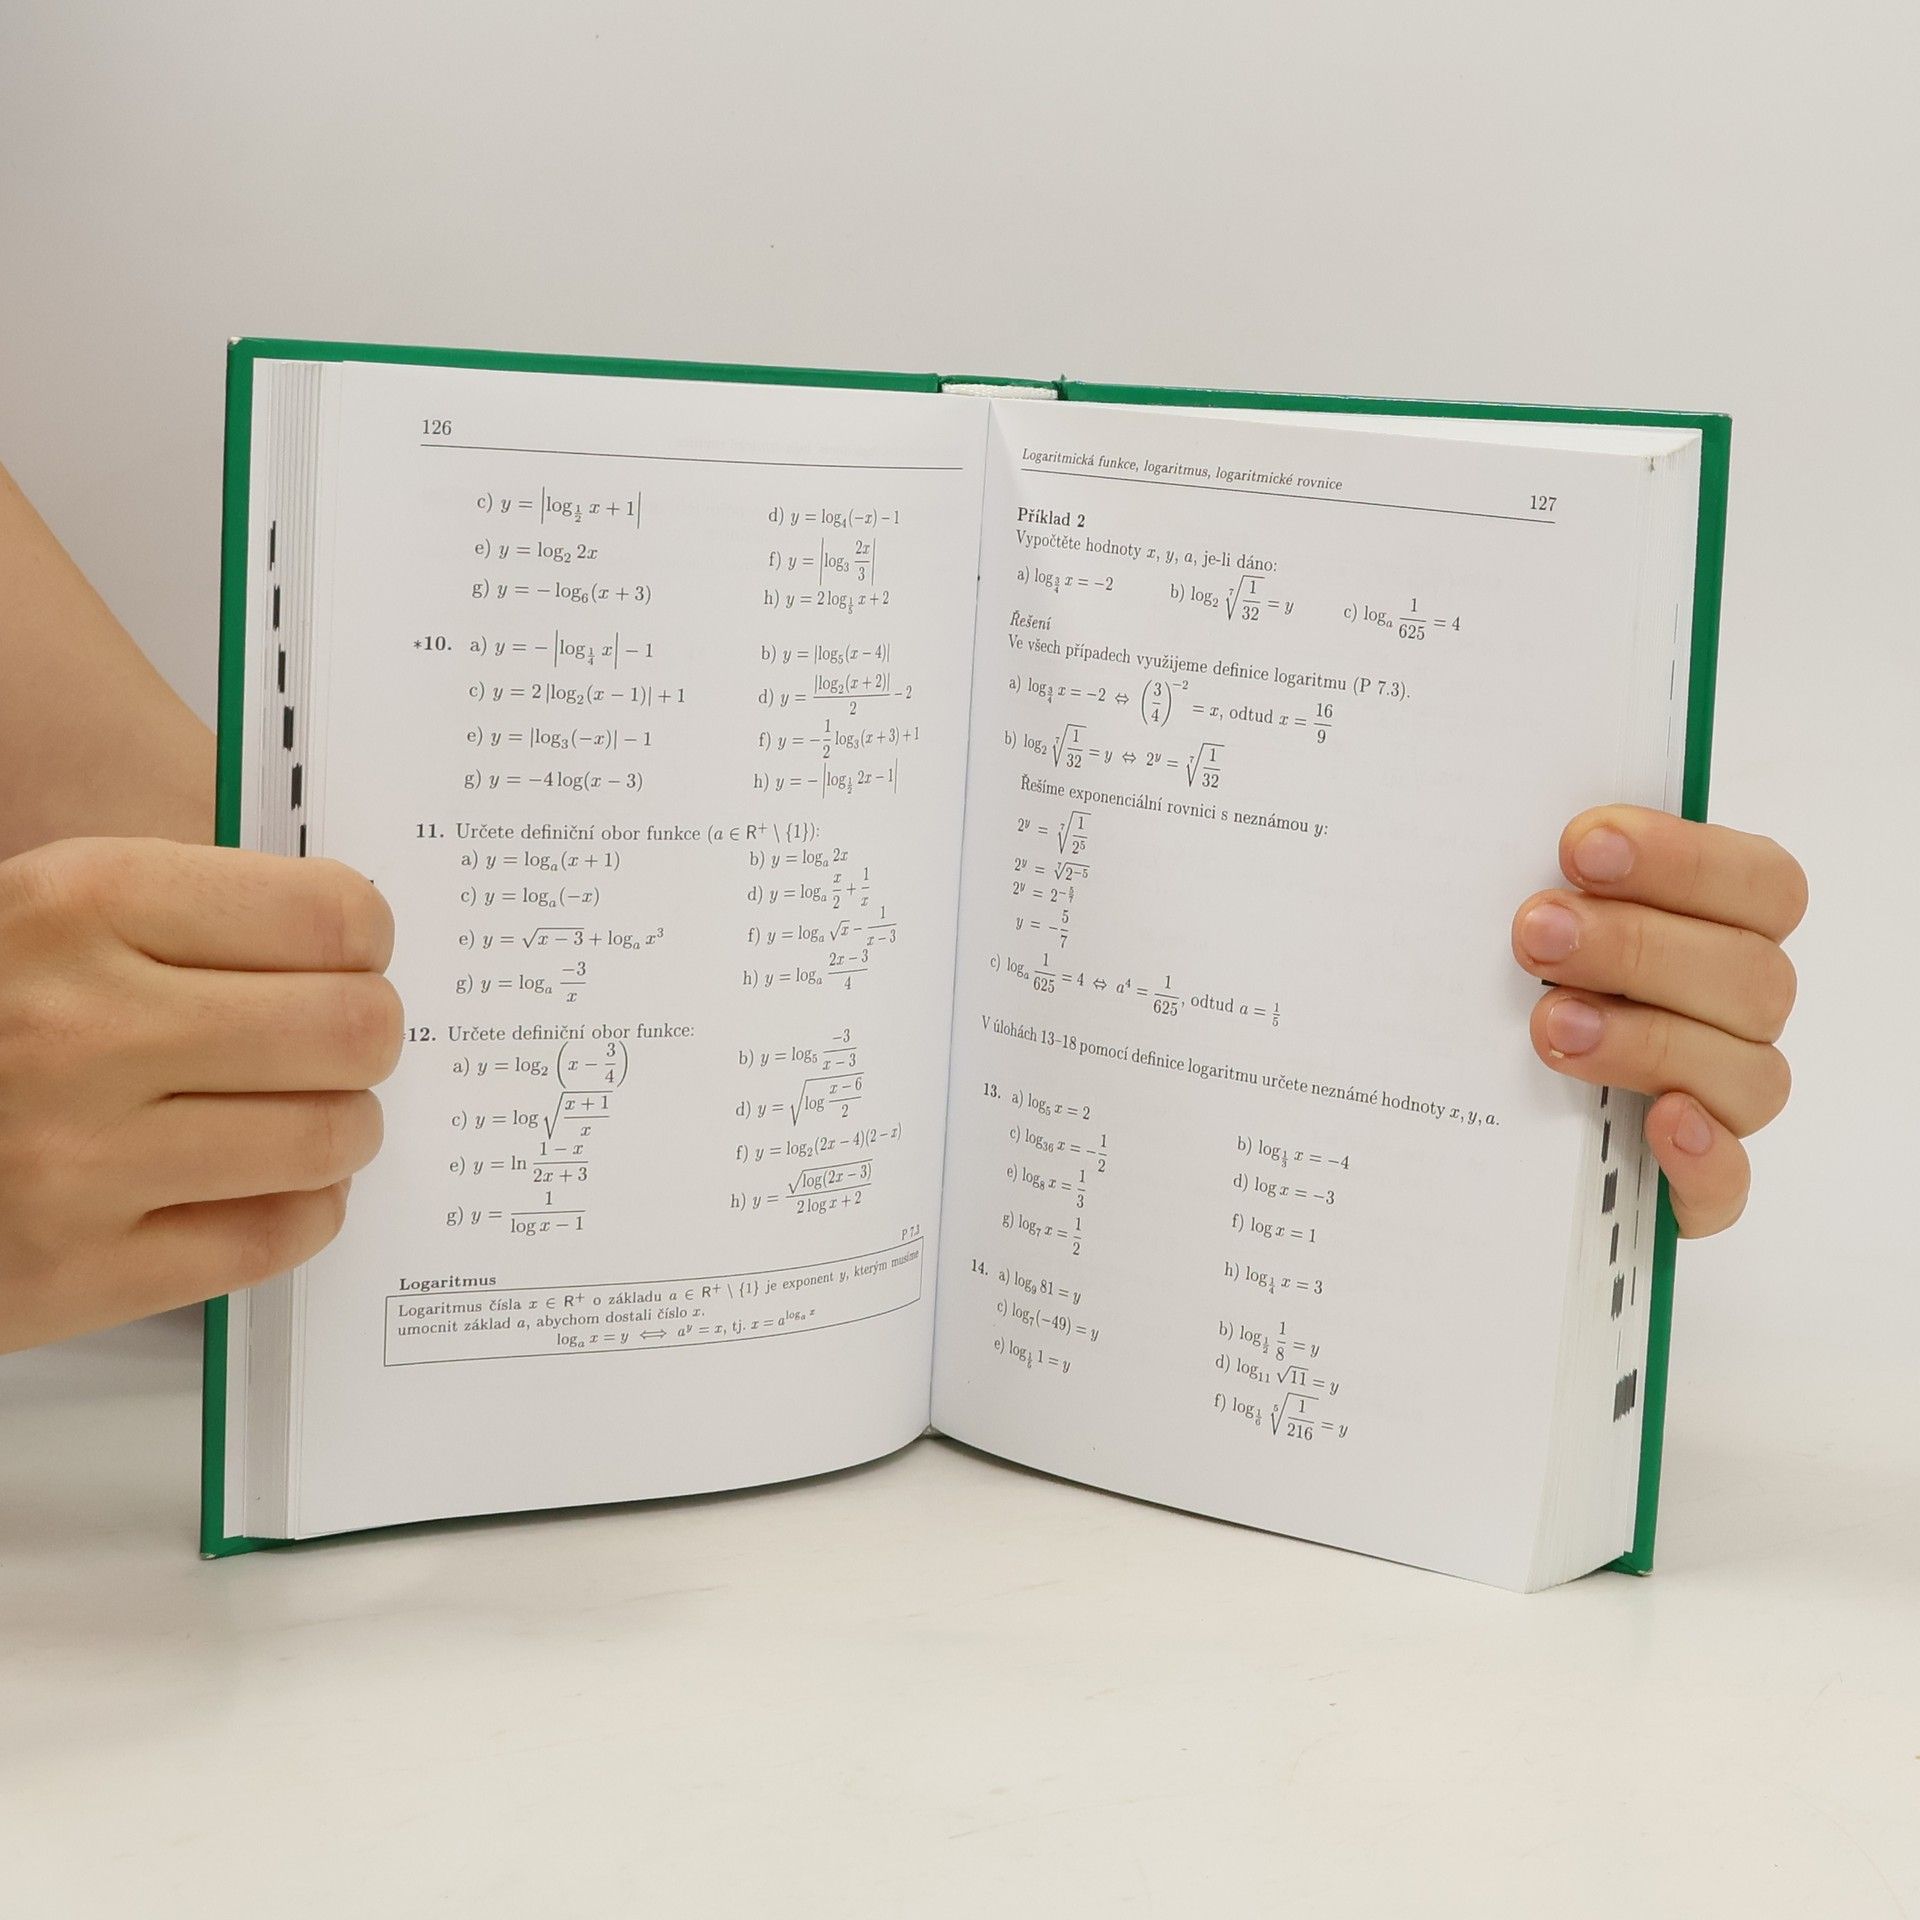 126
c) y = |log_{1/2} x + 1|
d) y = log₄(−x) − 1
e) y = log₂ 2x
f) y = |log₃ 2x/3|
g) y = − log₆(x + 3)
h) y = 2 log_{1/5} x + 2
*10. a) y = − |log_{1/4} x| − 1
b) y = |log₅(x − 4)|
c) y = 2 |log₂(x − 1)| + 1
d) y = |log₂(x + 2)|/2 − 2
e) y = |log₃(−x)| − 1
f) y = −1/2 log₃(x + 3) + 1
g) y = −4 log(x − 3)
h) y = − |log_{1/2} 2x − 1|
11. Určete definiční obor funkce (a ∈ R⁺ \ {1}):
a) y = logₐ(x + 1)
b) y = logₐ 2x
c) y = logₐ(−x)
d) y = logₐ x/2 + 1/x
e) y = √(x − 3) + logₐ x³
f) y = logₐ √x − 1/(x − 3)
g) y = logₐ −3/x
h) y = logₐ (2x − 3)/4
12. Určete definiční obor funkce:
a) y = log₂ (x − 3/4)
b) y = log₅ −3/(x − 3)
c) y = log √((x + 1)/x)
d) y = √(log (x − 6)/2)
e) y = ln (1 − x)/(2x + 3)
f) y = log₂(2x − 4)(2 − x)
g) y = 1/(log x − 1)
h) y = √(log(2x − 3))/(2 log x + 2)
P 7.3
Logaritmus
Logaritmus čísla x ∈ R⁺ o základu a ∈ R⁺ \ {1} je exponent y, kterým musíme
umocnit základ a, abychom dostali číslo x.
logₐ x = y ⟺ a^y = x, tj. x = a^{logₐ x}
Logaritmická funkce, logaritmus, logaritmické rovnice
127
Příklad 2
Vypočtěte hodnoty x, y, a, je-li dáno:
a) log_{3/4} x = −2 b) log₂ ⁷√(1/32) = y c) logₐ 1/625 = 4
Řešení
Ve všech případech využijeme definice logaritmu (P 7.3).
a) log_{3/4} x = −2 ⇔ (3/4)^{−2} = x, odtud x = 16/9
b) log₂ ⁷√(1/32) = y ⇔ 2^y = ⁷√(1/32)
Řešíme exponenciální rovnici s neznámou y:
2^y = ⁷√(1/2⁵)
2^y = ⁷√(2^{−5})
2^y = 2^{−5/7}
y = −5/7
c) logₐ 1/625 = 4 ⇔ a⁴ = 1/625, odtud a = 1/5
V úlohách 13–18 pomocí definice logaritmu určete neznámé hodnoty x, y, a.
13. a) log₅ x = 2
b) log_{1/3} x = −4
c) log₃₆ x = −1/2
d) log x = −3
e) log₈ x = 1/3
f) log x = 1
g) log₇ x = 1/2
h) log_{1/4} x = 3
14. a) log₉ 81 = y
b) log_{1/2} 1/8 = y
c) log₇(−49) = y
d) log₁₁ √11 = y
e) log_{1/6} 1 = y
f) log_{1/6} ⁵√(1/216) = y